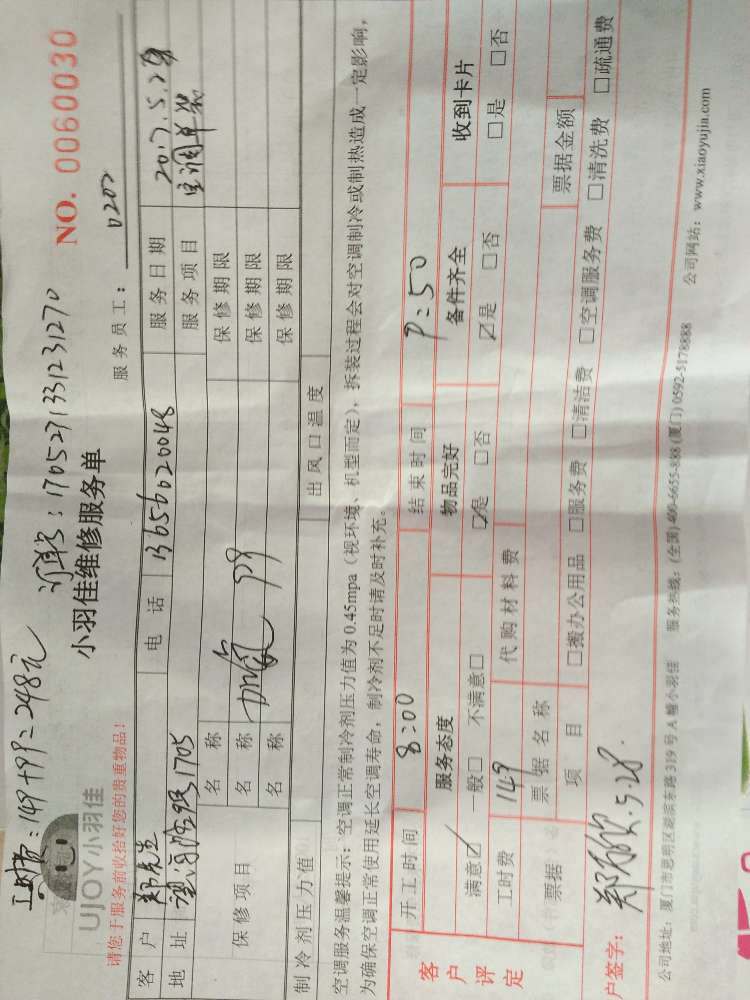 工时费:149+99=248元
订单号:170527133123127O
UJOY小羽佳
小羽佳维修服务单
NO. 0060030
请您于服务前收拾好您的贵重物品!
服务员工: 0202
客户 郑先生 电话 13656020048 服务日期 2017.5.28
地址 1705 服务项目 空调单装
保修项目
名称 保修期限
名称 加氟 99 保修期限
名称 保修期限
制冷剂压力值 出风口温度
空调服务温馨提示:空调正常制冷剂压力值为 0.45mpa(视环境、机型而定),拆装过程会对空调制冷或制热造成一定影响,
为确保空调正常使用延长空调寿命,制冷剂不足时请及时补充。
客户评定
开工时间 8:00 结束时间 P:50
服务态度 物品完好 备件齐全 收到卡片
满意☑ 一般□ 不满意□ ☑是 □否 ☑是 □否 □是 □否
工时费 149 代购材料费
票据 票据名称 票据金额
项目 □搬办公用品 □服务费 □清洁费 □空调服务费 □清洗费 □疏通费
户签字: 5.28.
公司地址:厦门市思明区湖滨东路 319 号 A 幢小羽佳 服务热线:(全国)400-6655-888 (厦门) 0592-5178888 公司网站:www.xiaoyujia.com